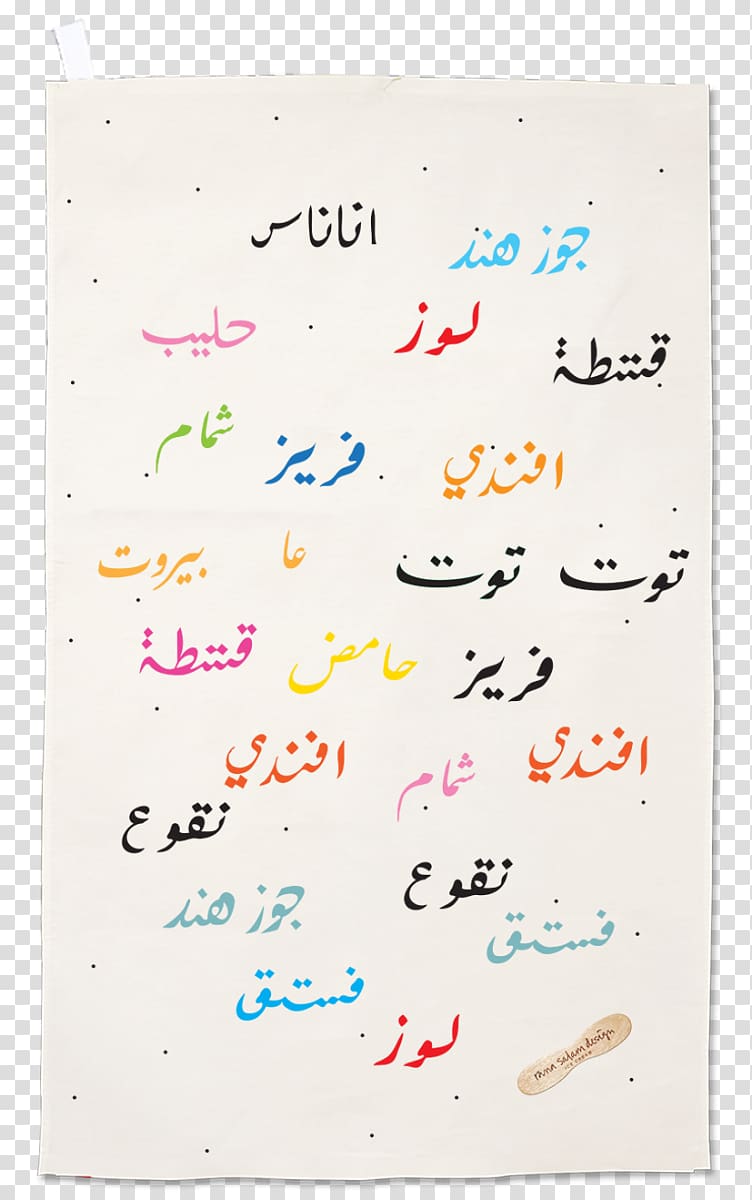 اناناس
جوز هند
حليب
لوز
قشطة
شمام
فريز
افندي
توت توت عا بيروت
فريز
حامض
قشطة
افندي
شمام
افندي
نقوع
نقوع
جوز هند
فستق
فستق
لوز
rana salam design
ICE CREAM